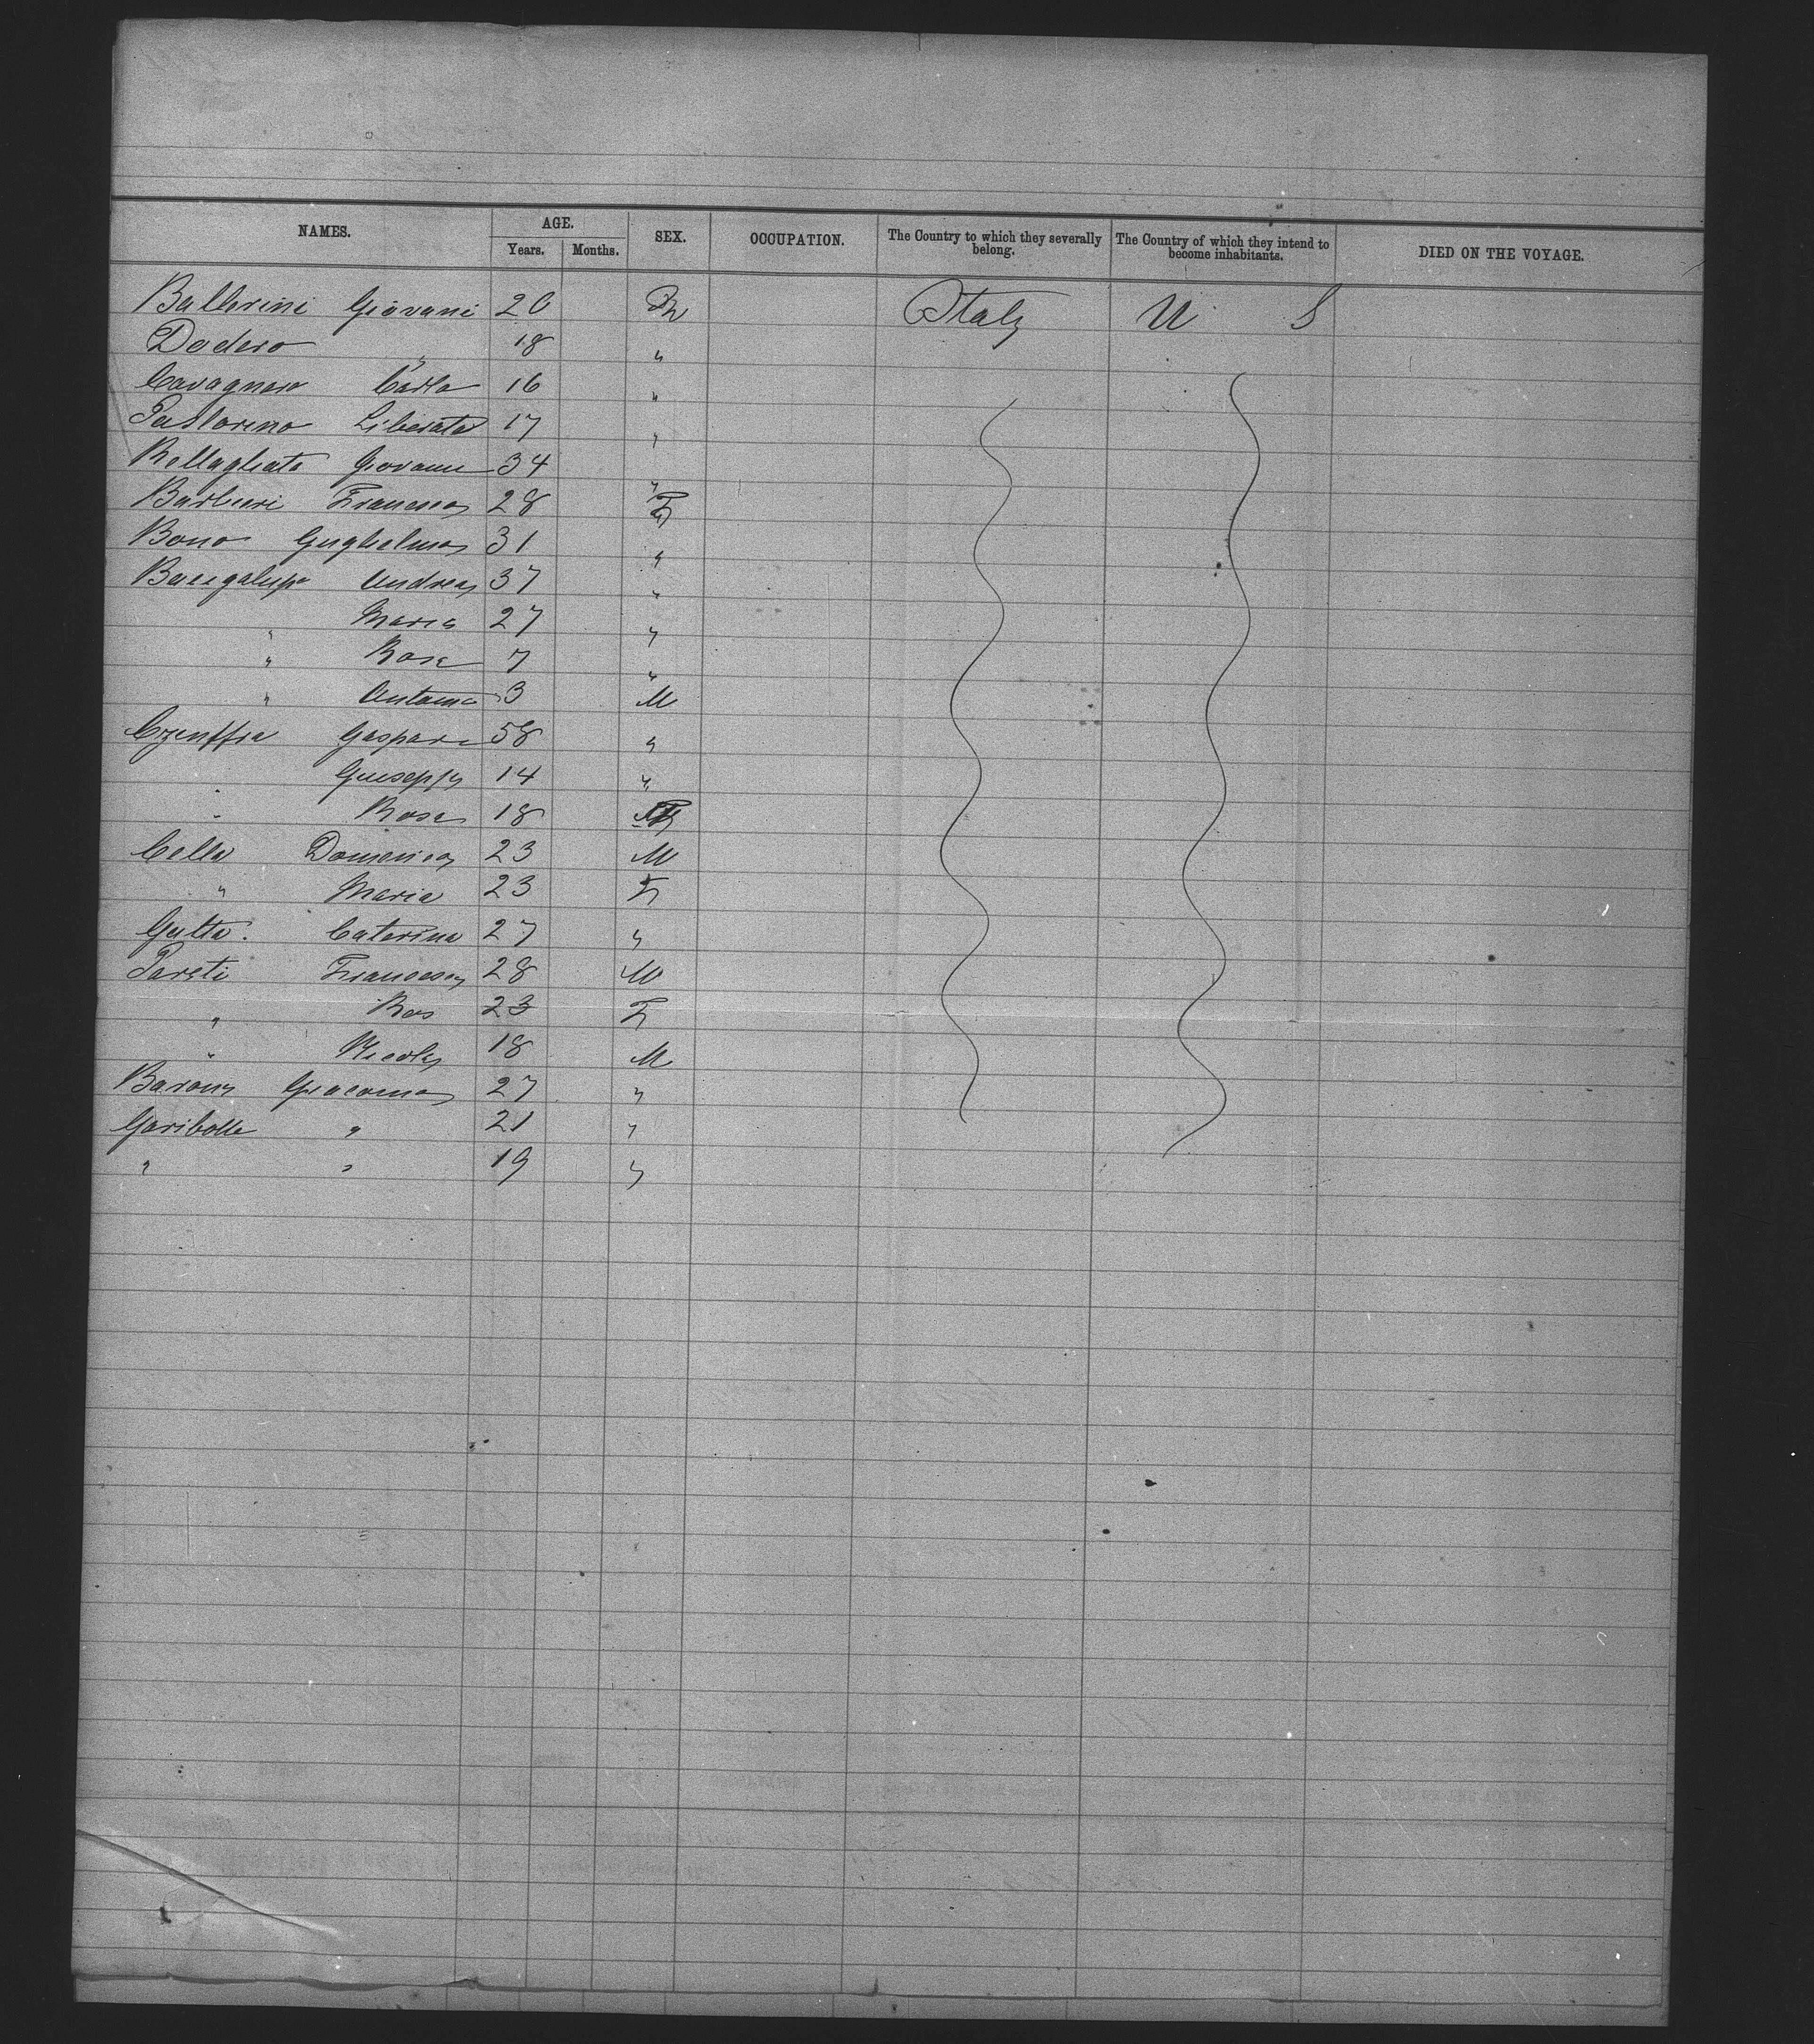 NAMES. AGE. SEX. OCCUPATION. The Country to which they severally belong. The Country of which they intend to become inhabitants. DIED ON THE VOYAGE.
Years. Months.
Ballerini Giovani 20 M Italy U S
Dodero " 18 "
Cavagnaro Carlo 16 "
Pastorino Liberata 17 "
Rollagliata Giovanni 34 "
Barbieri Francesco 28 F
Bono Guglielmo 31 "
Bacigalupo Andrea 37 "
" Maria 27 "
" Rosa 7 "
" Antonio 3 M
Gaspare 58 "
" Giuseppe 14 "
" Rosa 18 F
Cella Domenico 23 M
" Maria 23 F
Gatta. Caterina 27 "
Pareti Francesco 28 M
" Ros 23 F
" Nicola 18 M
Barony Giacomo 27 "
Garibotte " 21 "
" " 19 "